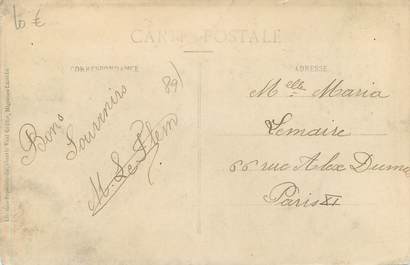 10 €
CARTE POSTALE
CORRESPONDANCE
ADRESSE
891
Bons
Souvenirs
M. Le Flem
Melle Maria
Lemaire
66 rue Alex Dumas
Paris XI